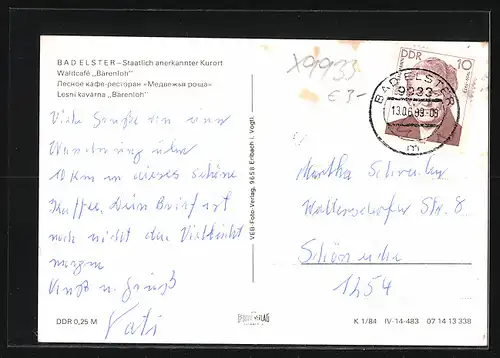 BAD ELSTER – Staatlich anerkannter Kurort
Waldcafé „Bärenloh"
Лесное кафе-ресторан «Медвежья роща»
Lesní kavárna „Bärenloh"
Viele Grüße von einer
Wanderung über
10 km in dieses schöne
Kaffee. Dein Brief ist
noch nicht da. Vielleicht
morgen
Kuß u. Gruß
Vati
DDR 0,25 M
VEB-Foto-Verlag, 9658 Erlbach i. Vogtl.
X9933
€ 3-
DDR
10
BAD ELSTER
9933
13.06.89-08
m
Martha
Str. 8
Schöneiche
1254
K 1/84 IV-14-483 07 14 13 338